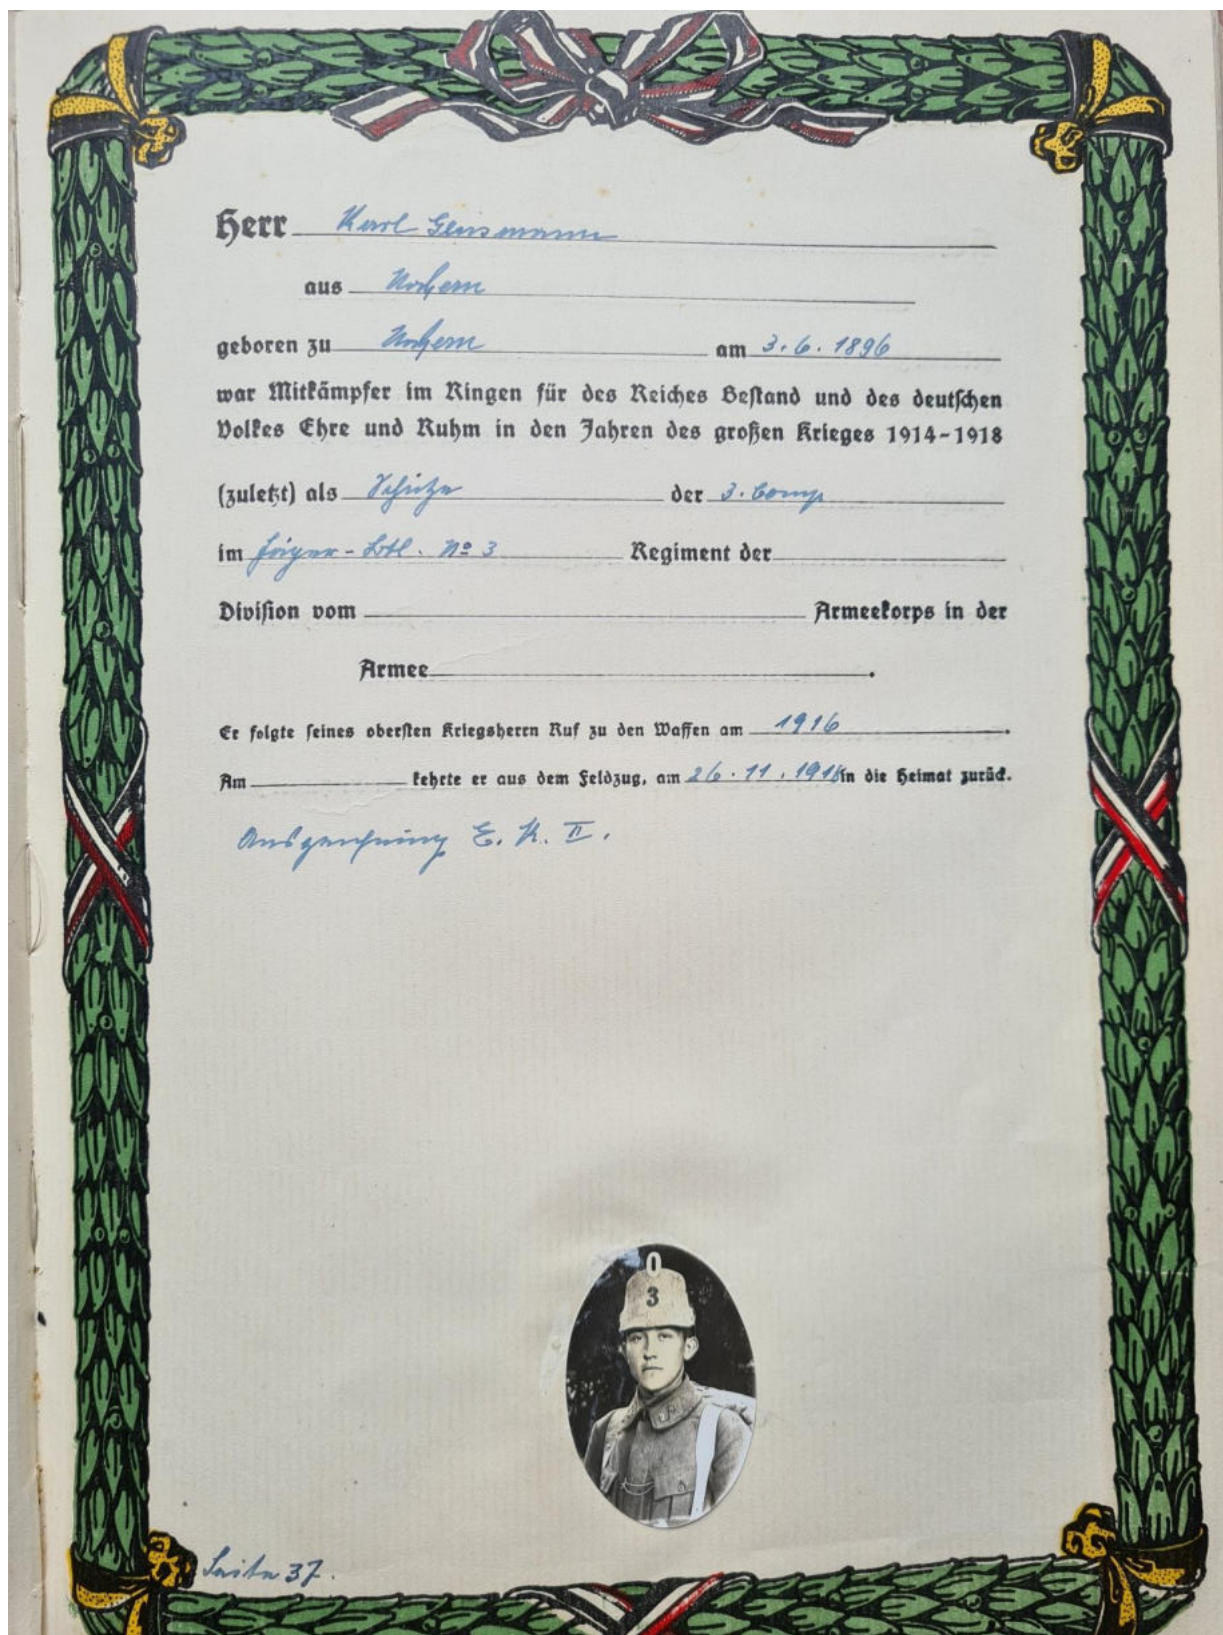 Herr Karl Gensmann
aus Nochern
geboren zu Nochern am 3.6.1896
war Mitkämpfer im Ringen für des Reiches Bestand und des deutschen
Volkes Ehre und Ruhm in den Jahren des großen Krieges 1914-1918
(zuletzt) als Schütze der 3. Comp
im Jäger-Btl. No 3 Regiment der
Division vom Armeekorps in der
Armee.
Er folgte seines obersten Kriegsherrn Ruf zu den Waffen am 1916.
Am kehrte er aus dem Feldzug, am 26.11.1918 in die Heimat zurück.
Auszeichnung E. K. II.
3
Seite 37.